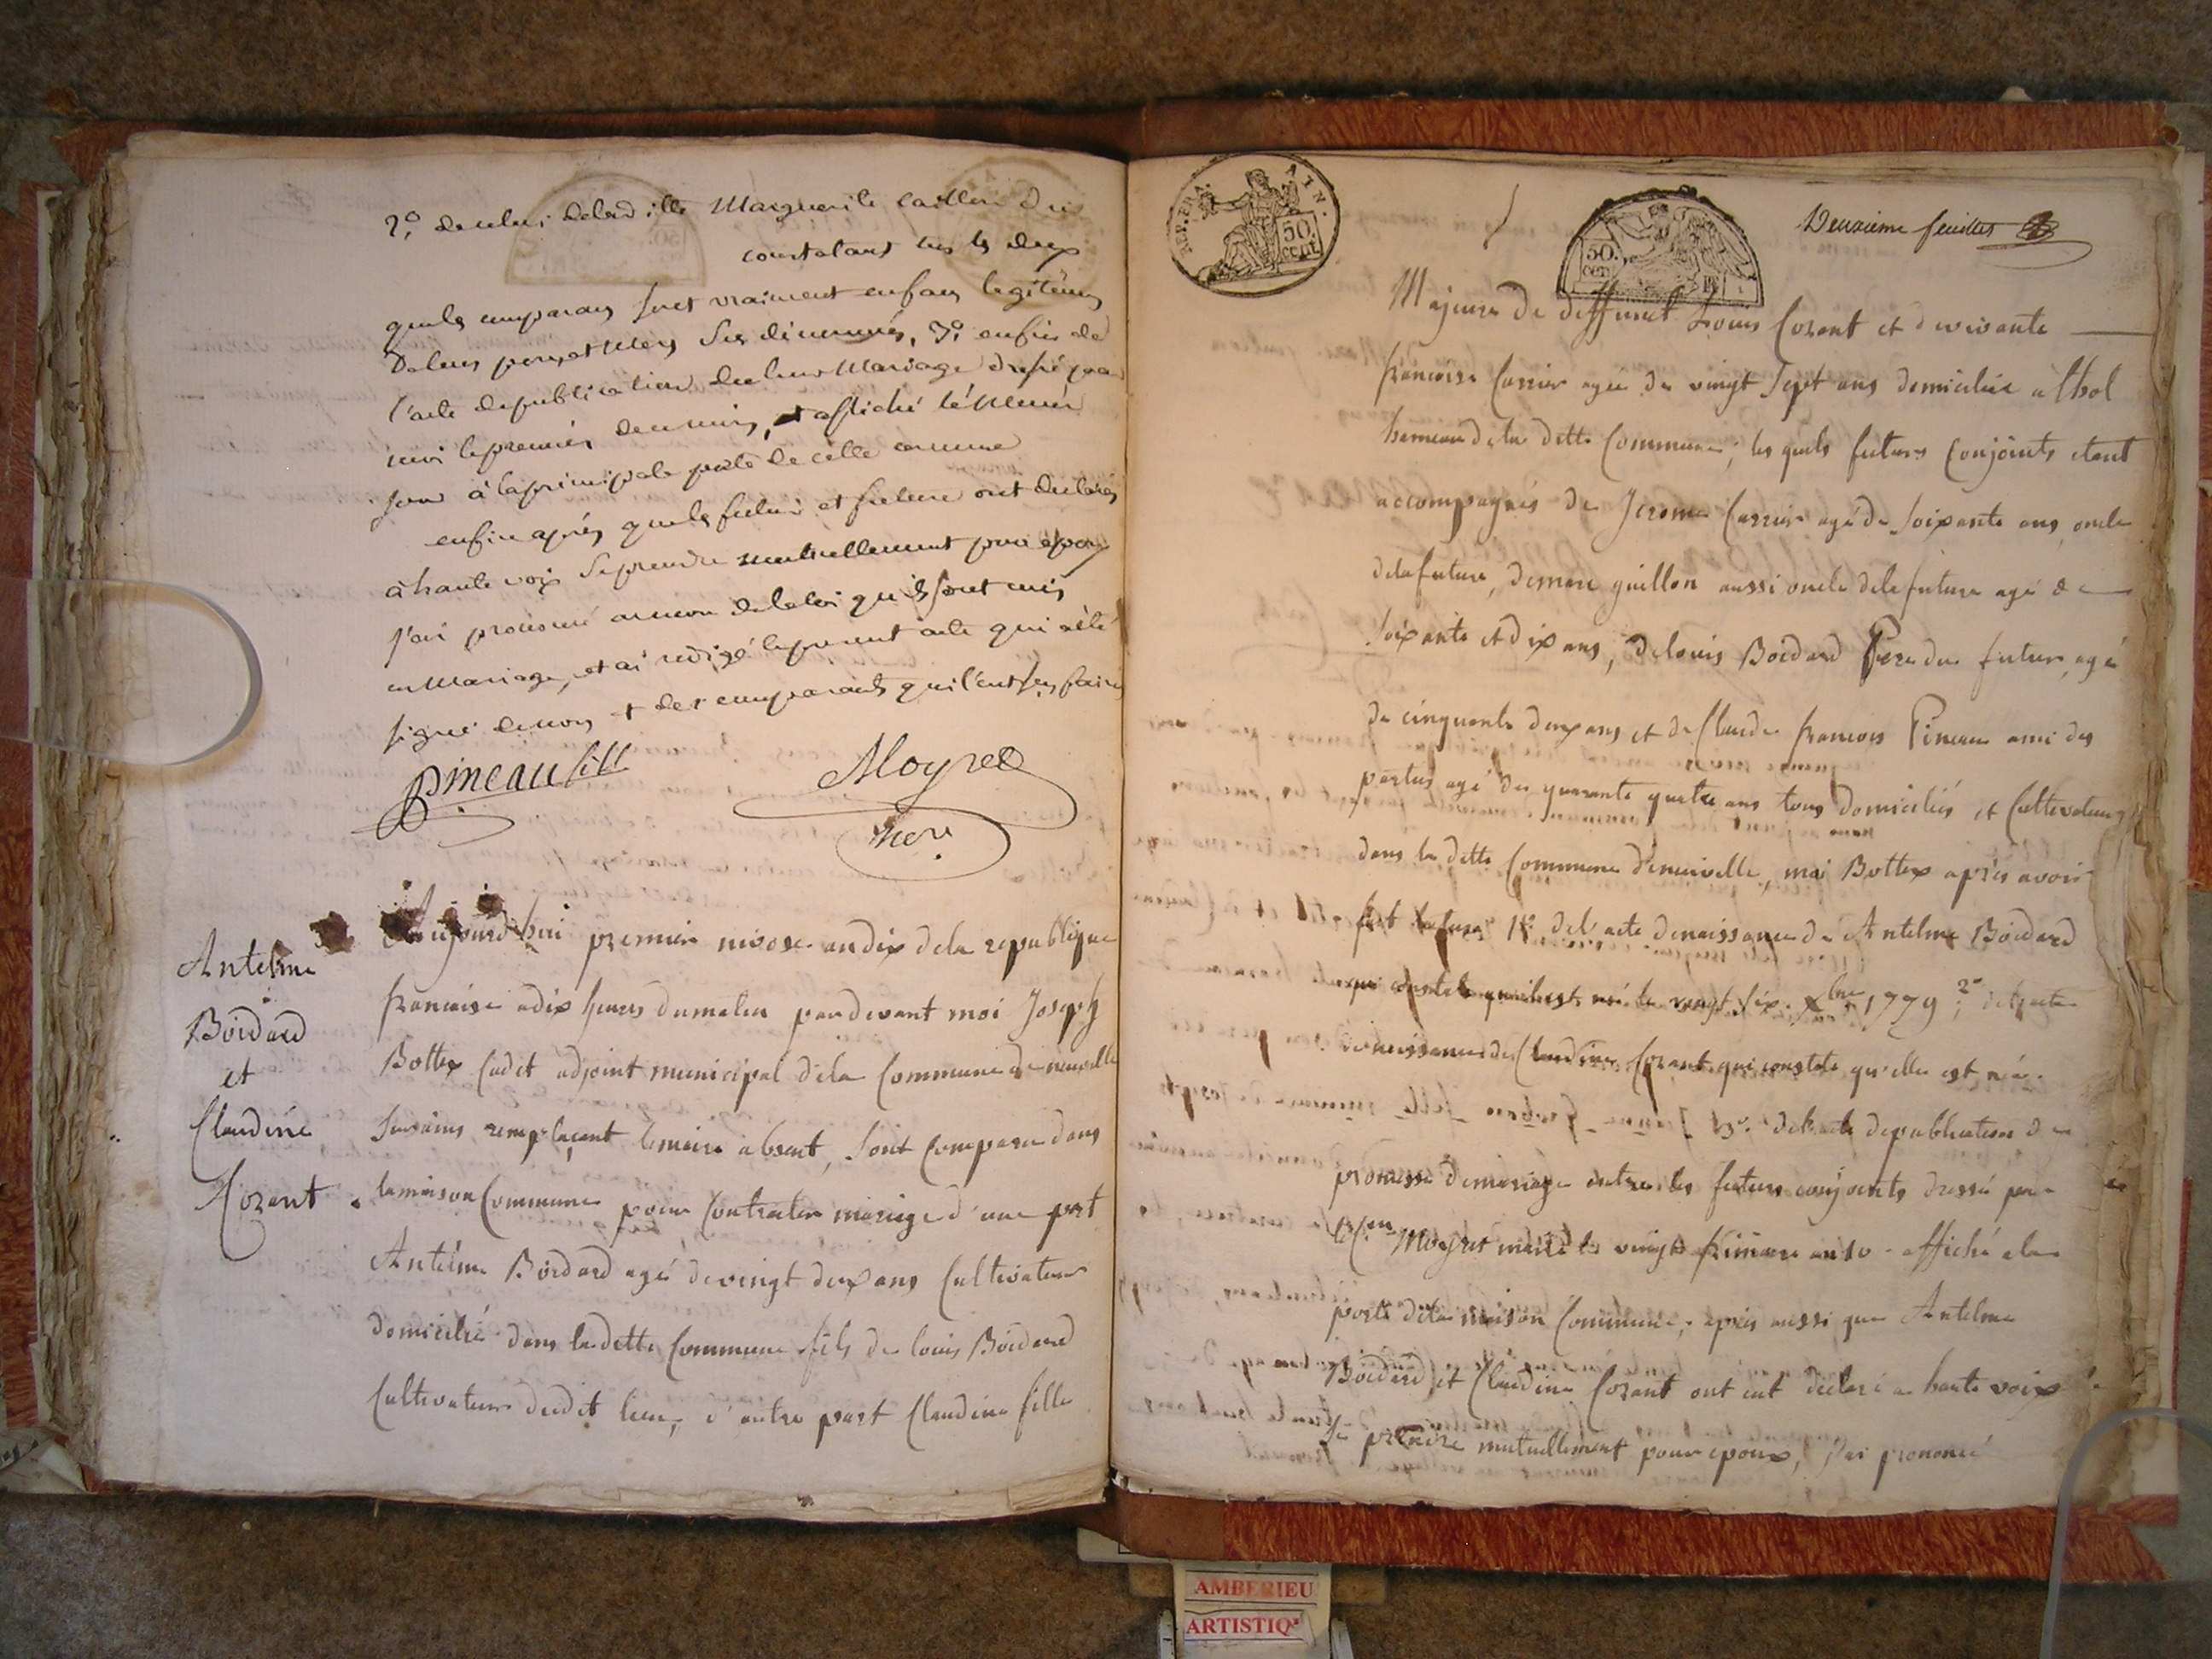 2.° de celui de lad. ille Marguerite Caillon du
constatant tus les deux
que les comparans sont vraiment enfans legitimes
de leurs peres et meres sus dénommés, 3.° enfin de
l'acte de publication de leur Mariage dressé par
moi le premier de ce mois, et affiché le même
jour à la principale porte de celle commune
enfin après que les futur et future ont declarés
à haute voix se prendre mutuellement pour epoux
j'ai prononcé au nom de la loi qu'ils sont unis
en Mariage, et ai redigé le present acte qui a été
signé de nous + des comparants qui l'ont su faire
Pineau fils
Moyret
Mere
Antelme
Boidard
et
Claudine
Cozant
Aujourd'hui premier nivose an dix de la republique
francaise a dix heures du matin pardevant moi Joseph
Bottex Cadet adjoint municipal de la Commune de neuville
sur ains remplaçant le maire absent, sont Comparu dans
la maison Commune pour Contracter mariage d'une part
Antelme Boidard agé de vingt deux ans Cultivateur
domicilié dans la dette Commune fils de louis Boidard
Cultivateur dudit lieu, d'autre part Claudine fille
REP. FRA. AIN.
50. cent
50. cen
Deuxieme feuillet
Majeure de deffunct Louis Cozant et de vivante
francoise Carrier agée de vingt sept ans domiciliée a thol
hameau de la dette Commune; les quels futurs Conjoints etant
accompagnés de Jerome Carrier agé de soixante ans, oncle
de la future, de marc guillon aussi oncle de la future agé de
soixante et dix ans, de louis Boidard Pere du futur, agé
de cinquante deux ans et de Claude francois Pineau ami des
parties agé de quarante quatre ans tous domiciliés et Cultivateurs
dans la dette Commune de neuville, moi Bottex après avoir
fait lecture 1.° de l'acte de naissance de Antelme Boidard
qui constate qu'il est né le vingt six Xbre 1779; 2.° de l'acte
de naissance de Claudine Cozant qui constate qu'elle est née
3.° de l'acte de publication de
promesse de mariage entre les futurs conjoints dressé par
le C.en Moyret maire le vingt frimaire an 10 affiché a la
porte de la maison Commune, après aussi que Antelme
Boidard et Claudine Cozant ont eut declaré a haute voix
se prendre mutuellement pour epoux, j'ai prononcé
AMBERIEU
ARTISTIQ